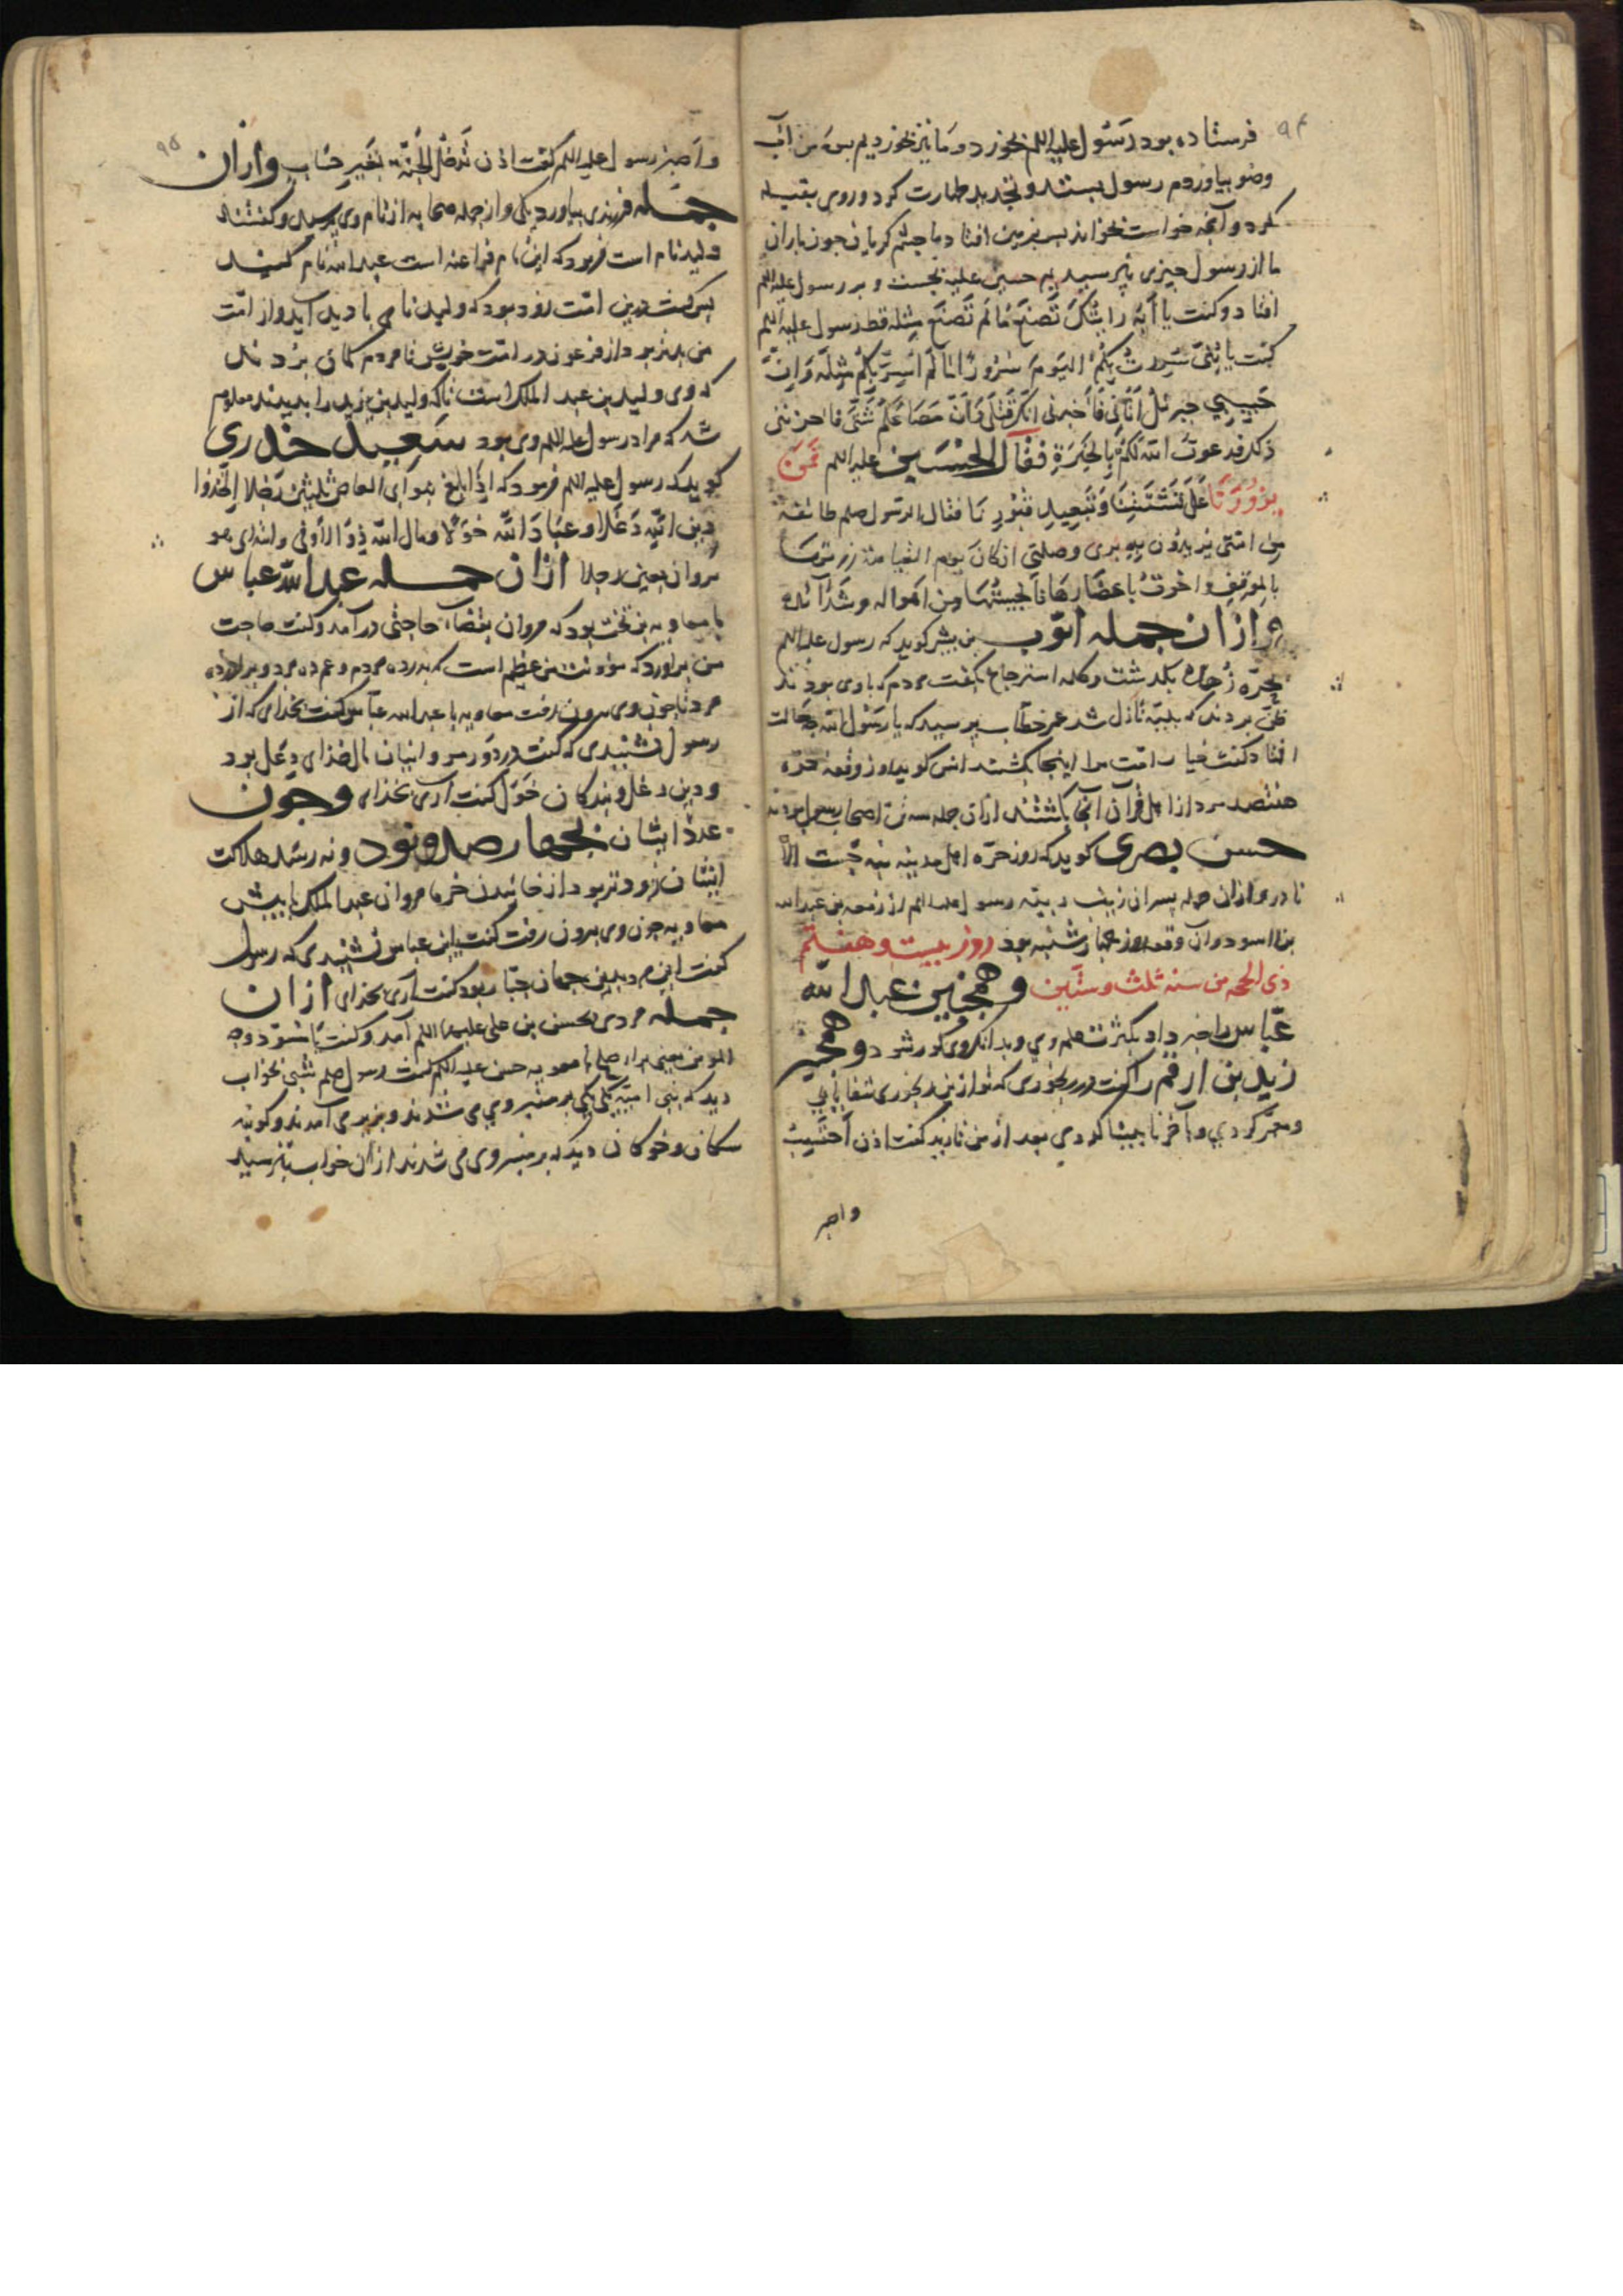 ۹۴
فرستاده بود رسول علیه السلم بخورد و ما نیز بخوردیم پس من آب
وضو بیاوردم رسول بستد و تجدید طهارت کرد و روی بقبله
کرد و آنچه خواست بخواند پس بزمین افتاد با چشم کریان چون باران
ما از رسول چیزی نپرسیدیم حسین علیه بجست و بر رسول علیه السلم
افتاد و کفت یا ابه رایتک تصنع ما لم تصنع مثله قط رسول علیه السلم
کفت یا بنی سررت بکم الیوم سرورا لما لم اسر بکم مثله و ان
حبیبی جبرئل اتانی فاخبرنی انکم قتلی و ان مصارعکم شتی فاحزننی
ذلک فدعوت الله لکم بالخیرة فقال الحسین علیه السلم فمن
یزورنا علی تشتتنا و تبعید قبورنا فقال الرسول صلعم طائفة
من امتی یریدون به بری وصلتی اذ کان یوم القیامة زرتها
بالموقف و اخذت باعضادها فانجیتها من اهواله و شدائده
و از ان جمله ایوب بن بشیر کوید که رسول علیه السلم
بحره زهره بکذشت و کلمه استرجاع بکفت مردم که با وی بودند
ظن بردند که بلیه نازل شد عمر خطاب پرسید که یا رسول الله چه حالت
افتاد کفت خیار امت مرا اینجا بکشند انس کوید روز وقعه حره
هفتصد مرد از اهل قرآن آنجا کشتند ازان جمله سه تن اصحاب رسول بودند
حسن بصری کوید که روز حره اهل مدینه نجست الا
نادر و ازان جمله پسران زینب ربیبه رسول علیه السلم از زمعه بن عبد الله
بن اسود و آن وقعه روز چهارشنبه بود روز بیست و هفتم
ذی الحجه من سنه ثلث و ستین و همچنین عبد الله
عباس را خبر داد بکثرت علم وی و بدانکه وی کور شود و همچنین
زید بن ارقم را کفت در رنجوری که تو ازین رنجوری شفا یابی
و معمر کردی و بآخر نابینا کردی بعد از من زید کفت اذن احتسب
واصبر
۹۵
و اصبر رسول علیه السلم کفت اذن تدخل الجنة بغیر حساب و ازان
جمله فرزندی بیاوردند یکی و از جمله صحابه از نام وی پرسید و کفتند
ولید نام است فرمود که این نام فراعنه است عبد الله نام کنید
پس کفت درین امت زود بود که ولید نامی با دید آید و از امت
من بدتر بود از فرعون در امت خویش تا مردم کمان بردند
که وی ولید بن عبد الملک است تا که ولید بن یزید را بدیدند معلوم
شد که مراد رسول علیه السلم وی بود سعید خدری
کوید که رسول علیه السلم فرمود که اذا بلغ بنو ابی العاص ثلثین رجلا اتخذوا
دین الله دغلا و عباد الله خولا و مال الله دولا
مروان بعین رجلا ازان جمله عبد الله عباس
با معاویه بر تخت بود که مروان بقضاء حاجتی در آمد و کفت حاجت
من براور که مؤونت من عظیم است که پدر ده مردم و عم ده مرد و برادر ده
مرد تا چون وی بیرون رفت معاویه با عبد الله عباس کفت بخدای که از
رسول شنیدی که کفت
و دین دغل و بندکان خول کفت آری بخدای و چون
عدد ایشان بچهارصد و نود و نه رسد هلاکت
ایشان زودتر بود از خائیدن خرما مروان عبد الملک را پیش
معاویه چون وی بیرون رفت کفت ابن عباس شنیدی که رسول
کفت این مرد جبار بود کفت آری بخدای ازان
جمله مردی بحسن بن علی علیهما السلم آمد و کفت یا مسود وجه
المؤمنین یعنی برای صلح با معویه حسن علیه السلم کفت رسول صلعم شبی بخواب
دید که بنی امیه یکی یکی بر منبر وی می شدند و بزیر می آمدند و کویند
سکان و خوکان دید که بر منبر وی می شدند ازان خواب بترسید